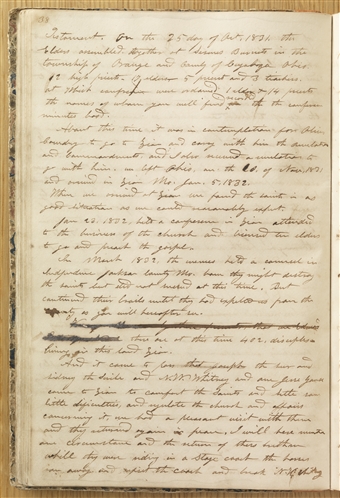 38
Testament. On the 25 day of Oct. 1831 the
Elders assembled together at Sirenes Burnets in the
township of Orange and County of Cuyahoga Ohio
12 high priests. 17 elders 5 priests and 3 teachers.
at which conference were ordained 1 elder & 14 priests
the names of whom you will find record on the conference
minutes book.
About this time it was in contemplation for Oliver
Cowdry to go to Zion and carry with him the revelations
and Commandments, and I also received a revelation to
go with him. we left Ohio, on the 20. of Nov. 1831
and arrived in Zion Mo. Jan. 5. 1832.
When we arived at Zion we found the saints in as
good situation as we could reasonably expect.
Jan 23. 1832. held a conference in Zion attended
to the business of the church and licensed ten elders
to go and preach the gospel.
In March 1832. the enemies held a council in
Independence Jackson County Mo. how they might destroy
the saints but did not succeed at this time. But
continued their broils until they had expelled us from the
county as you will hereafter see.
there are at this time 402. disciples
living in this land Zion.
And it came to pass that Joseph the seer and
Sidney the Scribe and N.K. Whitney and one Jesse Gause
came to Zion to comfort the Saints and settle some
little dificulties, and regulate the church and affairs
concerning it. We had a pleasant visit with them
and they returned again in peace. I will here mention
one circumstance on the return of these brethren
whilst they were riding in a Stage coach the horses
ran away and upset the coach and broke N.K. Whitney